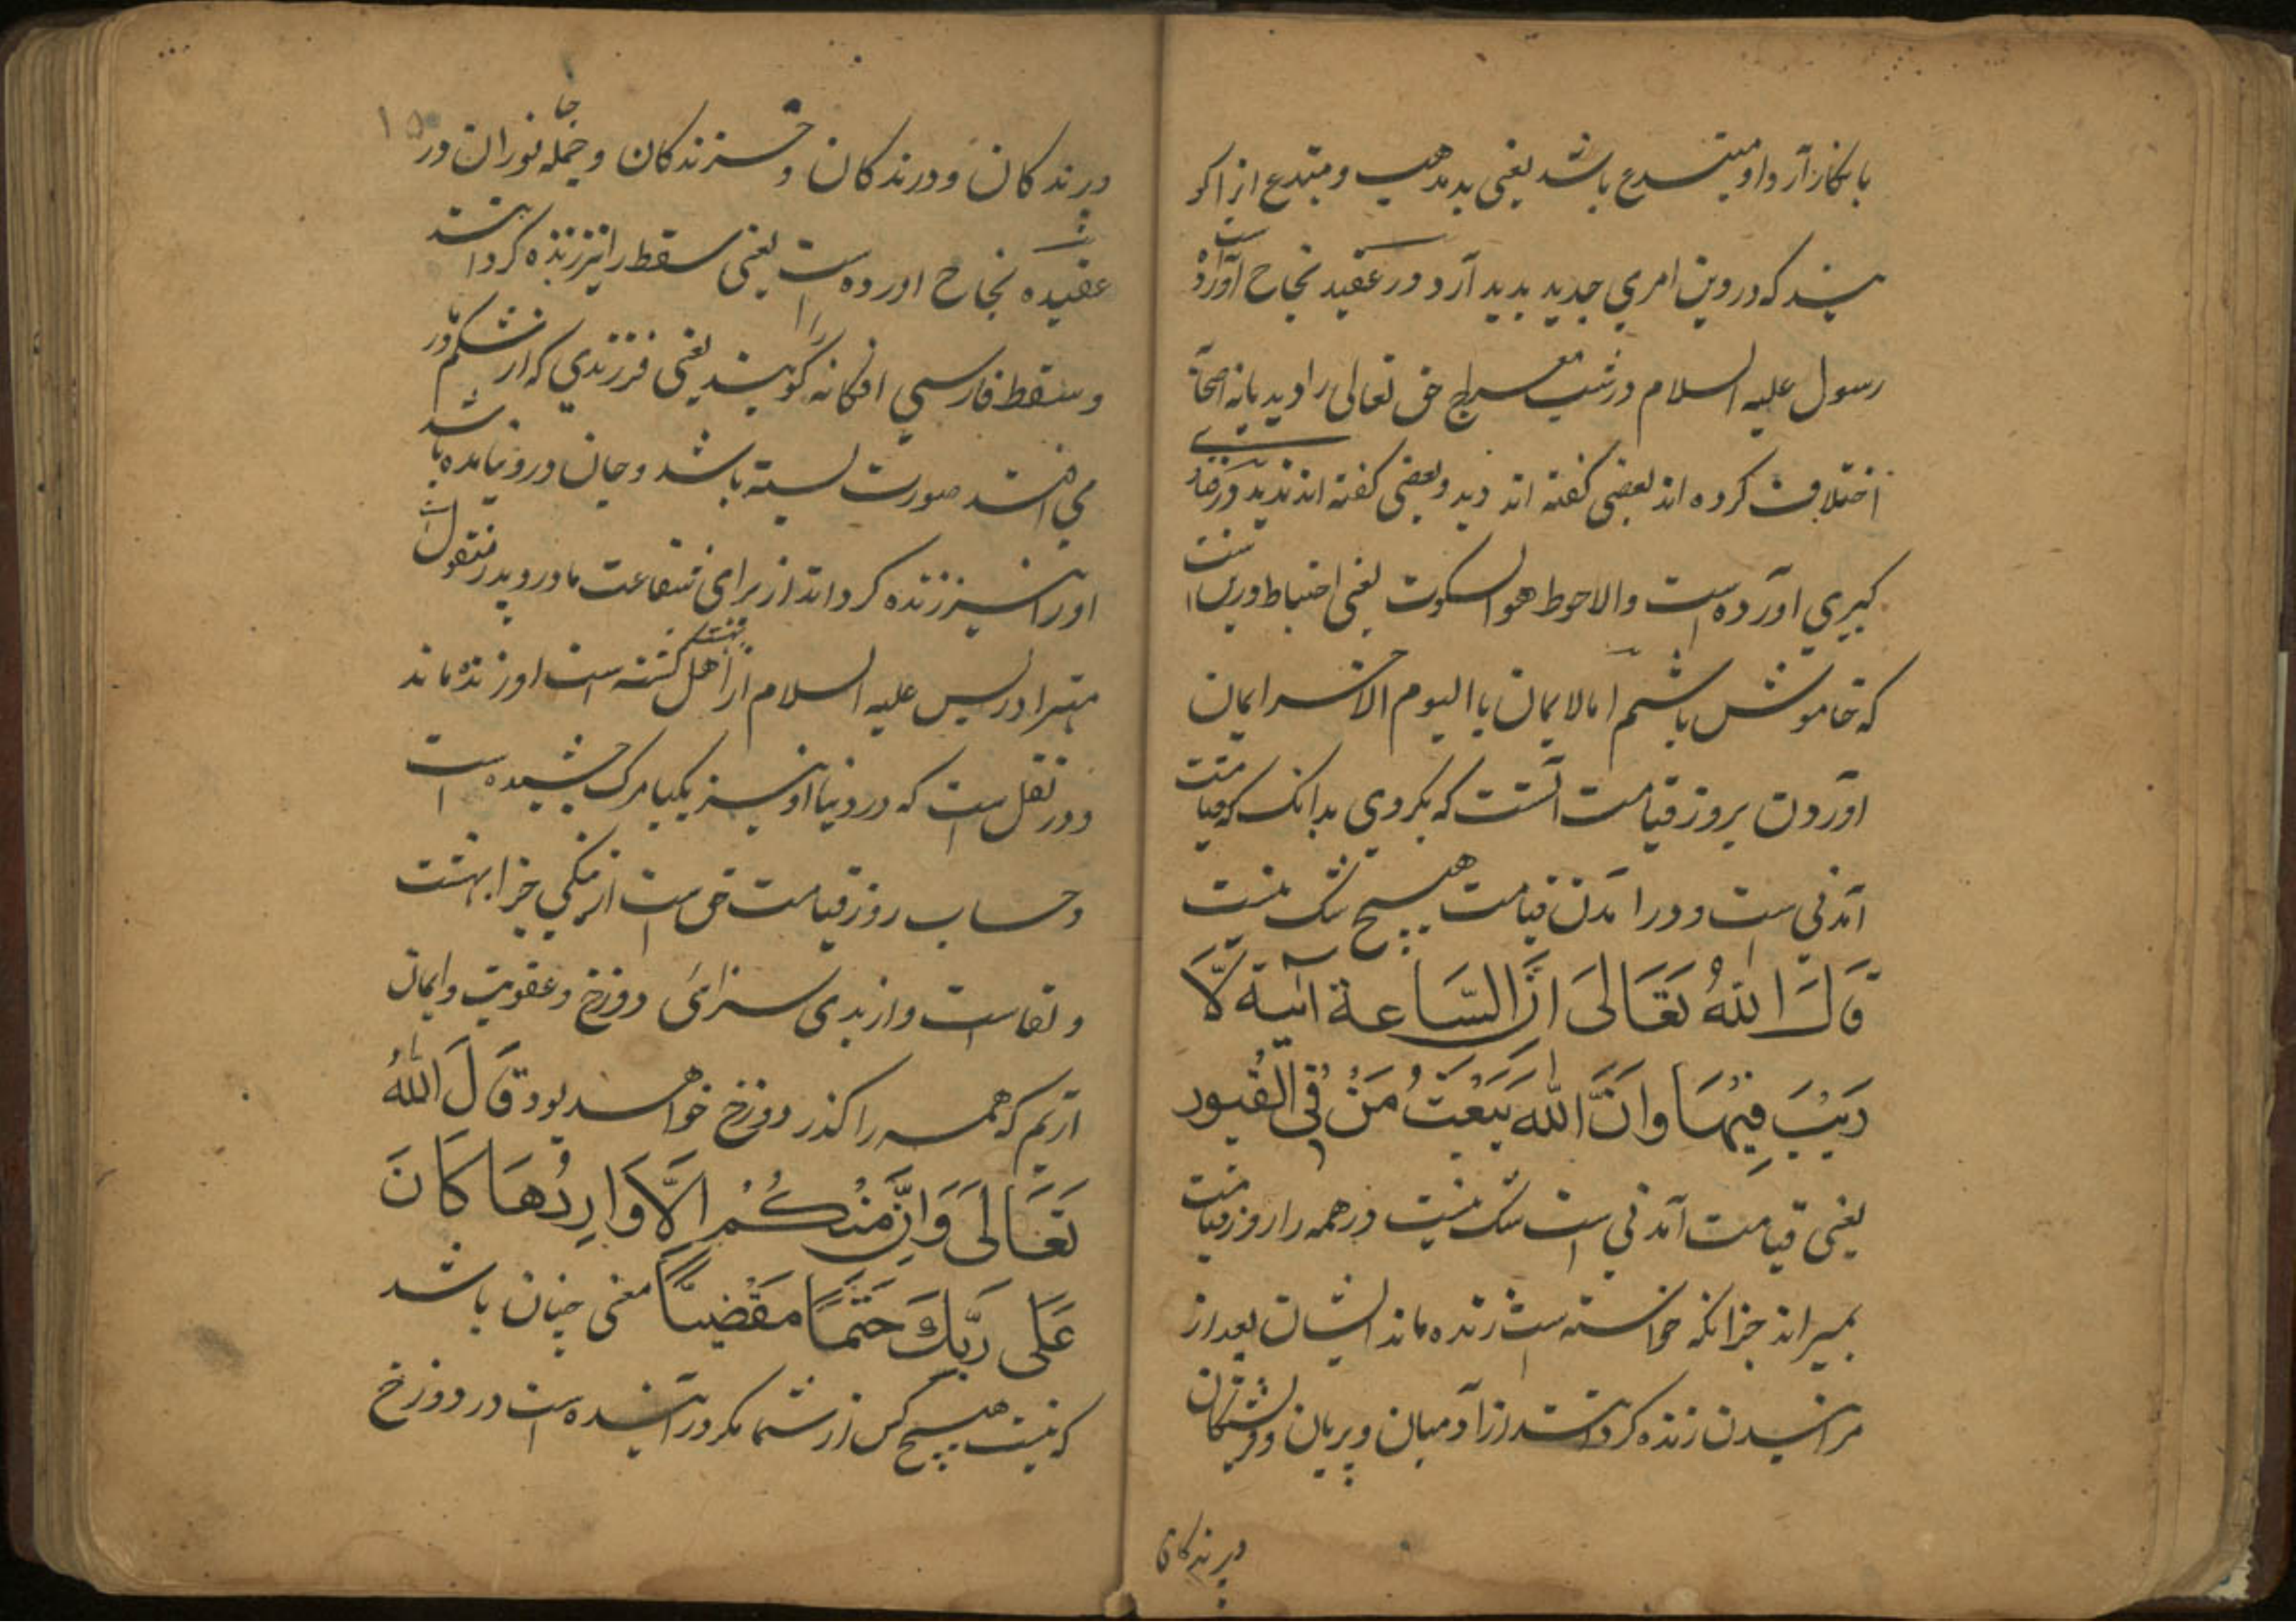 بانکار آرد او مبتدع باشد یعنی بدمذهب و مبتدع آنرا کو
یند که در دین امری جدید پدید آرد و در عقیده نجاح آورده است
رسول علیه السلام در شب معراج حق تعالی را دید یا نه صحابه
اختلاف کرده اند بعضی گفته اند دید و بعضی گفته اند ندید و در
کبیری آورده است والاحوط هو السکوت یعنی احتیاط درین است
که خاموش باشم اما لایمان باالیوم الاخر ایمان
آوردن بروز قیامت آنست که بگروی بدانک که قیامت
آمدنی است و در آمدن قیامت هیچ شک نیست
قَالَ اللهُ تَعَالَى اِنَّ السَّاعة آتية لَّا
رَيْبَ فِيْهَا وَاَنَّ اللهَ يَبْعَثُ مَنْ فِي القُبُور
یعنی قیامت آمدنی است شک نیست در همه را روز قیامت
بمیراند جز آنکه خواسته است زنده ماند ایشان بعد از
مرانیدن زنده گرداند از آدمیان و پریان و فرشتگان
و پرندکان
و پرندکان و درندکان و خزندکان و جمله جانوران در
عقیده نجاح آورده است یعنی سقط را نیز زنده گرداند
و سقط فارسی افکانه را گویند یعنی فرزندی که از شکم مادر
می افتد صورت بسته باشد و جان در و نیامده باشد
او را نیز زنده گرداند از برای شفاعت مادر و پدر منقول است
مهتر ادریس علیه السلام از اهل بهشت گشته است او زنده ماند
و در نقل است که در دنیا او نیز یکبار مرگ چشیده است
و حساب روز قیامت حق است از نیکی جزا بهشت
و لقاست و از بدی سزای دوزخ و عقوبت و ایمان
آریم که همه را گذر دوزخ خواهد بود قَالَ اللهُ
تَعَالَى وَاِنْ مِّنْكُمْ اِلَّا وَارِدُهَا كَانَ
عَلَى رَبِّكَ حَتْمًا مَقْضِيًّا معنی چنان باشد
که نیست هیچ کس از شما مگر در آینده است در دوزخ